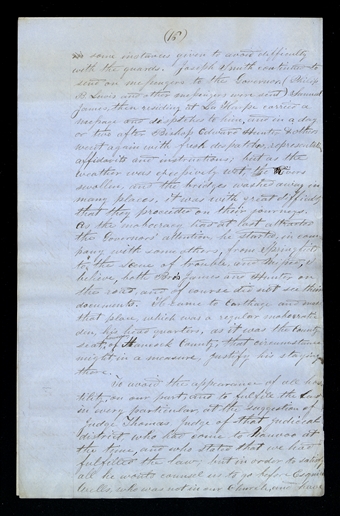 (15)
in some instances given to avoid difficulty
with the guard. Joseph Smith continued to
send on messengers to the Governor, (Alvin
B. Lewis and other messengers were sent) Samuel
James, then residing at La Harpe carried a
message and dispatches to him, and in a day
or two after Bishop Edward Hunter & others
went again with fresh dispatches, representations,
affidavits and instructions; but as the
weather was excessively wet the rivers
swollen, and the bridges washed away in
many places, it was with great difficulty
that they proceeded on their journeys.
As the mobocracy had at last attracted
the Governor's attention, he started in com-
pany with some others, from Springfield
to the scene of trouble, and missed, I
believe both Bro. James and Hunter on
the road, and of course did not see their
documents. He came to Carthage and made
that place, which was a regular mobocratic
den, his head quarters, as it was the County
seat, of Hancock County, that circumstance
might in a measure, justify his staying
there.
To avoid the appearance of all hos-
tility on our part, and to fulfill the Law
in every particular, at the suggestion of
Judge Thomas, Judge of that judicial
district, who had come to Nauvoo at
the time, and who stated that we had
fulfilled the law, but in order to satisfy
all he would counsel us to go before Esquire
Wells, who was not in our Church, and have